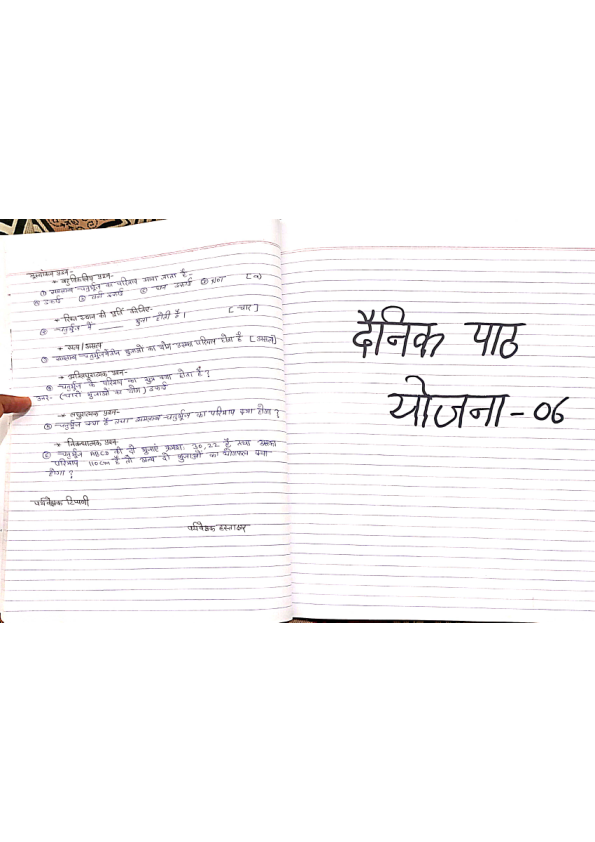 मूल्यांकन प्रश्न-
→ बहुविकल्पीय प्रश्न-
① समलम्ब चतुर्भुज का परिमाप मापा जाता है-
① इकाई ② वर्ग इकाई ③ घन इकाई ④ NOT [a]
→ रिक्त स्थान की पूर्ति कीजिए-
② चतुर्भुज में ______ भुजा होती हैं। [चार]
→ सत्य/असत्य
③ समलम्ब चतुर्भुज भुजाओं का योग उसका परिमाप होता है [असत्य]
→ अतिलघुरात्मक प्रश्न-
④ चतुर्भुज के परिमाप का सूत्र क्या होता है?
उत्तर- (चारों भुजाओं का योग) इकाई
→ लघुरात्मक प्रश्न-
⑤ चतुर्भुज क्या है तथा समलम्ब चतुर्भुज का परिमाप क्या होगा?
→ निबन्धात्मक प्रश्न-
⑥ चतुर्भुज ABCD की दो भुजाएं क्रमशः 30, 22 हैं तथा उसका
परिमाप 110cm है तो अन्य दो भुजाओं का योगफल क्या
होगा?
पर्यवेक्षक टिप्पणी
पर्यवेक्षक हस्ताक्षर
दैनिक पाठ
योजना-06